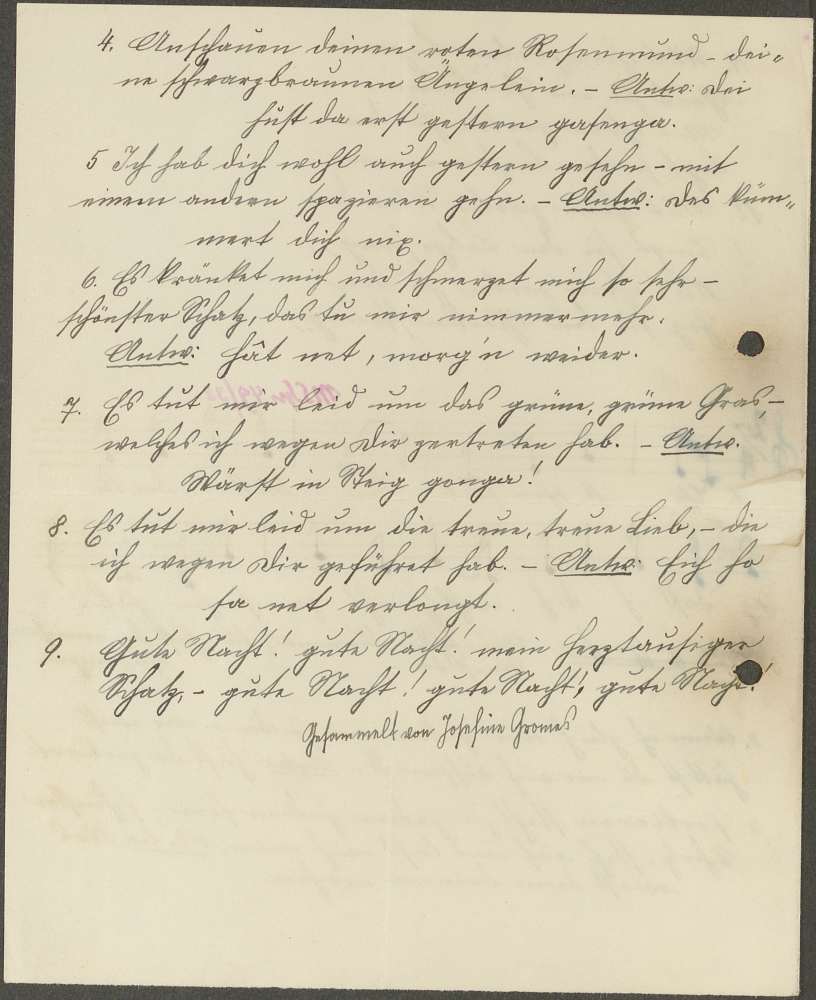 4. Anschauen deinen roten Rosenmund - dei=
ne schwarzbraunen Äugelein. - Antw: Dei
hust da erst gestern gasenga.
5 Ich hab dich wohl auch gestern gesehn - mit
einem andern spazieren gehn. - Antw: Des küm„
mert dich nix.
6. Es kränket mich und schmerzet mich so sehr -
schönster Schatz, das tu mir nimmermehr.
Antw: hât net, morg'n weider.
7. Es tut mir leid um das grüne, grüne Gras, -
welches ich wegen Dir zertreten hab. - Antw.
Wärst in Steig gonga!
8. Es tut mir leid um die treue, treue Lieb, - die
ich wegen Dir geführet hab. - Antw: Eich ho
sa net verlongt.
9. Gute Nacht! gute Nacht! mein herztausiger
Schatz, - gute Nacht! gute Nacht!, gute Nacht!
Gesammelt von Josefine Gromes